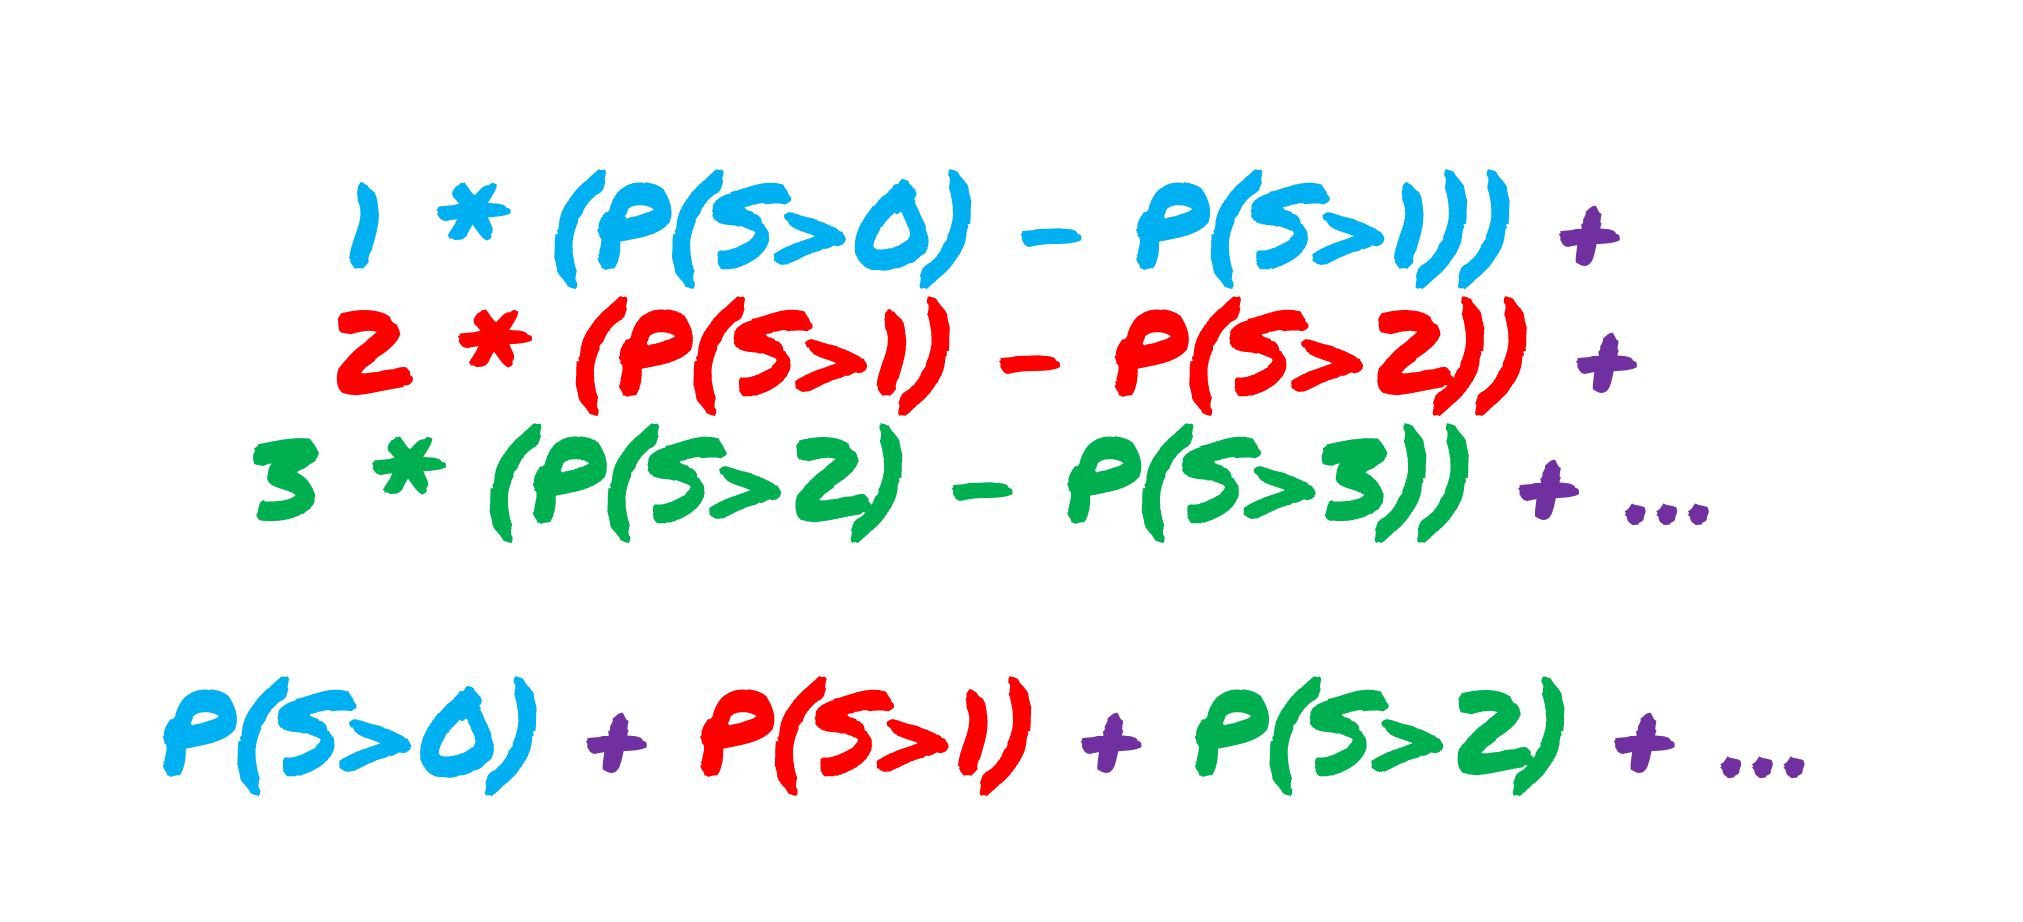 1 * (P(S>0) - P(S>1)) +
2 * (P(S>1) - P(S>2)) +
3 * (P(S>2) - P(S>3)) + ...
P(S>0) + P(S>1) + P(S>2) + ...